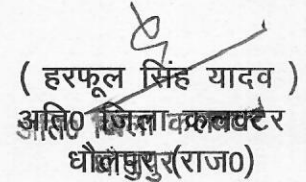 ( हरफूल सिंह यादव )
अति0 जिला कलक्टर
धौलपुर (राज0)